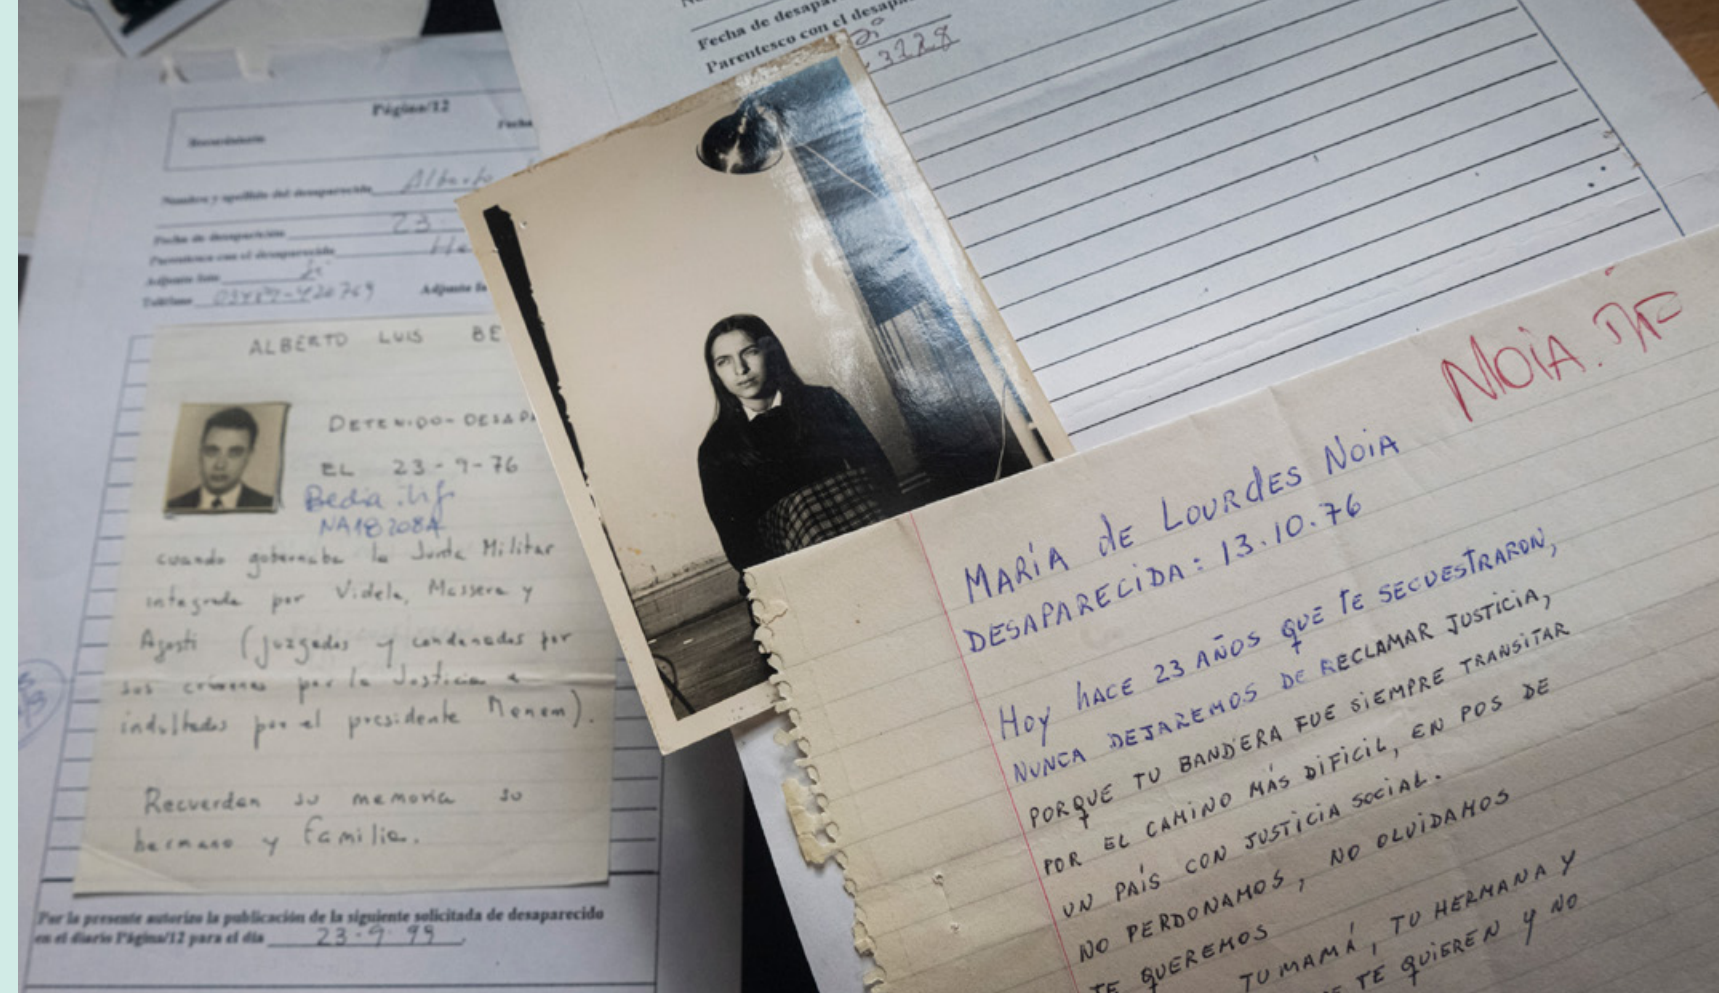 Página/12
Fecha
Recordatorio
Nombre y apellido del desaparecido Alberto
Fecha de desaparición 23-
Parentesco con el desaparecido He
Adjunto foto si
Teléfono Adjunto
ALBERTO LUIS BE
DETENIDO-DESAPA
EL 23-9-76
Bedia.tif
NA18208A
cuando gobernaba la Junta Militar
integrada por Videla, Massera y
Agosti (juzgados y condenados por
sus crímenes por la Justicia e
indultados por el presidente Menem).
Recuerdan su memoria su
hermano y familia.
Por la presente autorizo la publicación de la siguiente solicitada de desaparecido
en el diario Página/12 para el día 23-9-99.
Fecha de desapa
Parentesco con el desapa
3228
NOIA.TIF
MARÍA de LOURdES NOIA
DESAPARECIDA: 13.10.76
HOY hACE 23 AÑOS QUE TE SECUESTRARON,
NUNCA DEJAREMOS DE RECLAMAR JUSTICIA,
PORQUE TU BANDERA FUE SIEMPRE TRANSITAR
POR EL CAMINO MÁS DIFICIL, EN POS DE
UN PAÍS CON JUSTICIA SOCIAL.
NO PERDONAMOS, NO OLVIDAMOS
TE QUEREMOS
TU MAMÁ, TU HERMANA Y
TE QUIEREN Y NO